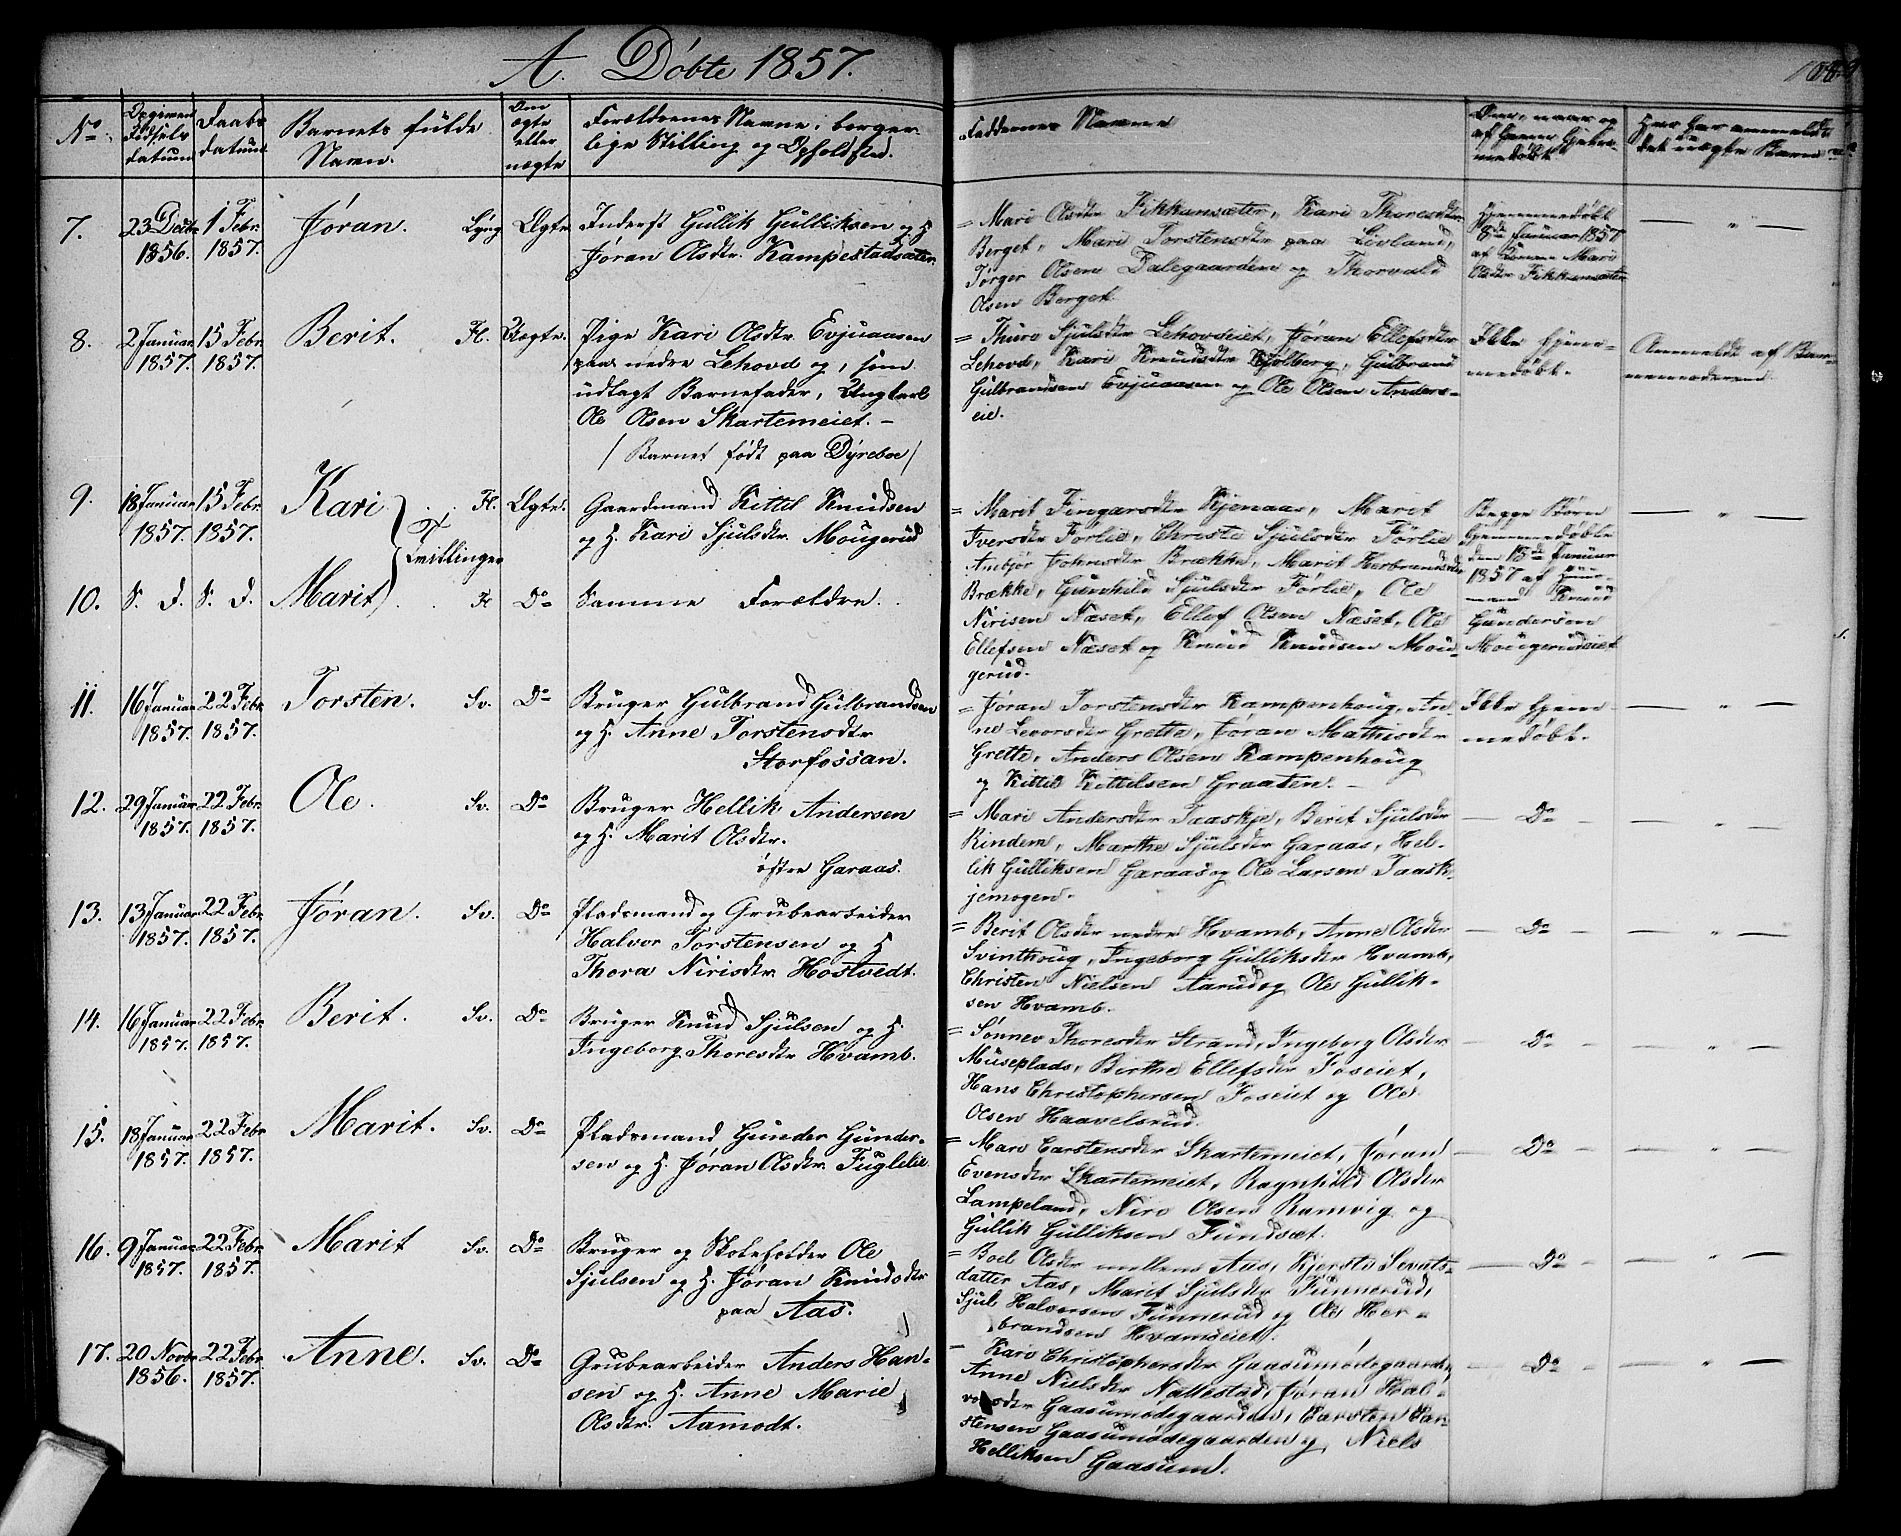 A. Døbte 1857.
No
Opgiven Fødsels datum
Daabs datum
Barnets fulde Navn.
Om ægte eller uægte
Forældrenes Navne, borger-
lige Stilling og Opholdsted.
Faddernes Navne
7. 23 Decbr 1856. 1 Febr. 1857. Jøran. Ægte. Inderst Gullik Gulliksen og H.
Jøran Olsdtr. Kampestadsæter
= Mari Olsdtr Fikkansæter, Kari Thoresdtr
Berget, Mari Torstensdtr paa Livland,
Tørger Olsen Dalegaarden og Thorvald
Olsen Berget.
Hjemmedøbt
8de Januar 1857
af Konen Mari
Olsdtr Fikkansæter
— " —
8. 2 Januar 1857. 15 Febr. 1857. Berit. Fl. Uægte. Pige Kari Olsdtr Evjuaasen
paa nedre Lehovd og, som
udlagt Barnefader, Ungkarl
Ole Olsen Skartemeiet. —
/ Barnet født paa Dyreboe /
= Thuro Sjulsdtr Lehovdeiet, Jøran Ellefsdtr
Lehovd, Kari Knudsdtr Kjølberg, Gulbrand
Gulbrandsen Evjuaasen og Ole Olsen Anders-
eie.
Ikke hjem-
medøbt.
Anmeldt af Bar-
nemoderen
9. 18 Januar 1857. 15 Febr. 1857. Kari Fl. Ægte. Gaardmand Kittil Knudsen
og H. Kari Sjulsdtr. Mougerud
Tvillinger
10. S. D. S. D. Marit Fl Do Samme Forældre.
= Marit Fingarsdtr Kjenaas, Marit
Iversdtr Førlie, Christi Sjulsdtr Førlie
Ambjør Johnsdtr Brække, Marit Herbrandsdtr
Brække, Gunhild Sjulsdtr Førlie, Ole
Nirisen Næset, Ellef Olsen Næset, Ole
Ellefsen Næset og Knud Knudsen Mou-
gerud.
Begge Børn
hjemmedøbte
den 18de Januar
1857 af Huus-
mand Knud
Gundersen
Mougerudeiet
— " —
11. 16 Januar 1857. 22 Febr. 1857. Torsten. Sv. Do Bruger Gulbrand Gulbrandsen
og H. Anne Torstensdtr
Storfossan.
= Jøran Torstensdtr Kampenhoug, An-
ne Levorsdtr Grette, Jøran Mathisdtr
Grette, Anders Olsen Kampenhoug
og Kittil Kittilsen Graaten. —
Ikke hjem-
medøbt.
— " —
12. 29 Januar 1857. 22 Febr. 1857. Ole. Sv. Do Bruger Hellik Andersen
og H. Marit Olsdtr.
østre Garaas.
= Mari Andersdtr Taaskje, Berit Sjulsdtr
Rindem, Marthe Sjulsdtr Garaas, Hel-
lik Gulliksen Garaas og Ole Larsen Taask-
jemogen.
— Do —
— " —
13. 13 Januar 1857. 22 Febr. 1857. Jøran. Sv. Do Pladsmand og Grubearbeider
Halvor Torstensen og H
Thora Nirisdtr. Hostvedt.
= Berit Olsdtr nedre Hvamb, Anne Olsdtr
Svinthoug, Ingeborg Gulliksdtr Hvamb,
Christen Nielsen Aarud og Ole Gullik-
sen Hvamb.
— Do —
— " —
14. 16 Januar 1857. 22 Febr. 1857. Berit. Sv. Do Bruger Knud Sjulsen og H.
Ingeborg Thoresdtr Hvamb.
= Sønnev Thoresdtr Strand, Ingeborg Olsdtr
Museplads, Birthe Ellefsdtr Foseiet,
Hans Christophersen Foseiet og Ole
Olsen Haavelsrud.
— Do —
— " —
15. 18 Januar 1857. 22 Febr. 1857. Marit. Sv. Do Pladsmand Gunder Gunder-
sen og H. Jøran Olsdtr. Fuglelie
= Mari Carstensdtr Skartemeiet, Jøran
Evensdtr Skartemeiet, Ragnhild Olsdtr
Lampeland, Niri Olsen Ramvig og
Gullik Gulliksen Fundsæt.
— Do —
— " —
16. 9 Januar 1857. 22 Febr. 1857. Marit Sv. Do Bruger og Skoleholder Ole
Sjulsen og H. Jøran Knudsdtr
paa Aas.
= Boel Olsdtr mellem Aas, Kjersti Sevats-
datter Aas, Marit Sjulsdtr Funnerud,
Sjul Halvorsen Funnerud og Ole Her-
brandsen Hvamseiet.
— Do —
— " —
17. 20 Novbr 1856. 22 Febr. 1857. Anne. Sv. Do Grubearbeider Anders Han-
sen og H. Anne Marie
Olsdtr. Aamodt.
— Kari Christophersdtr Gaasumødegaarden,
Anne Nielsdtr Nattestad, Jøran Hal-
vorsdtr Gaasumødegaarden, Carsten Car-
stensen Gaasumødegaarden og Niels
Helliksen Gaasum.
— Do —
— " —